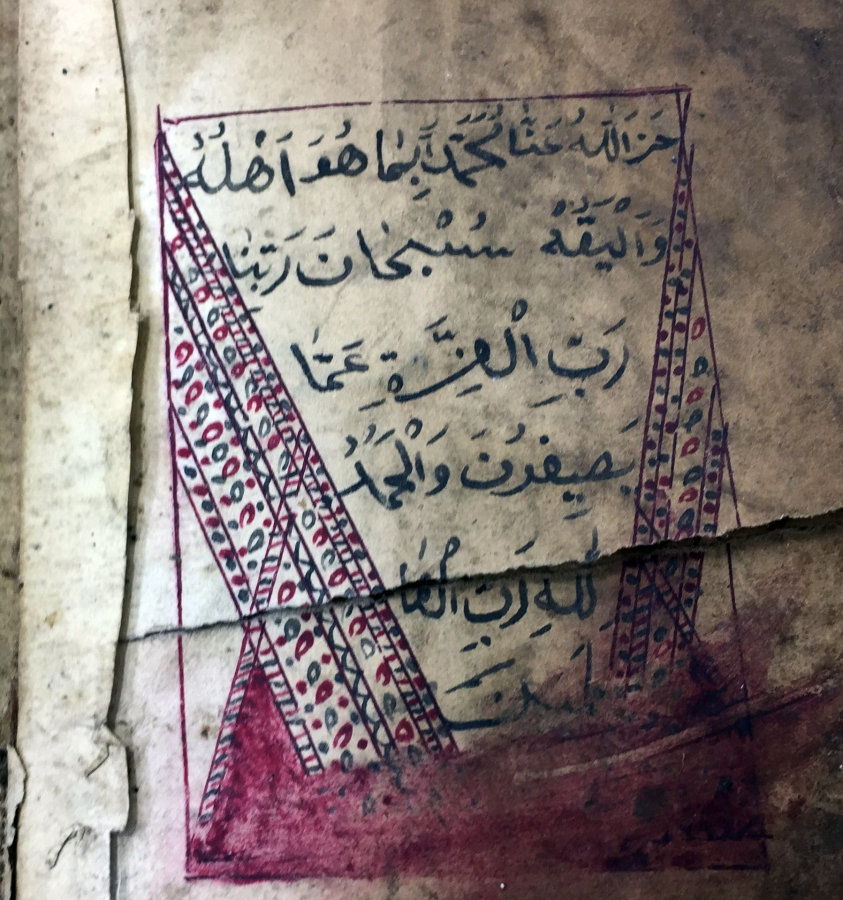 جَزَاللّٰهُ عَنَّا مُحَمَّدًا بِمَا هُوَ اَهْلُهُ
وَاَلْيَقُهُ سُبْحَانَ رَبِّنَا
رَبِّ الْعِزَّةِ عَمَّا
يَصِيفُونَ وَالْحَمْدُ
لِلّٰهِ رَبِّ الْعَا
لَمِينَ